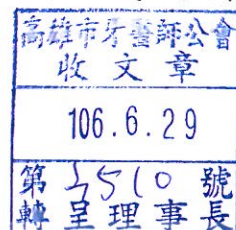 高雄市牙醫師公會
收文章
106.6.29
第3510號
轉呈理事長